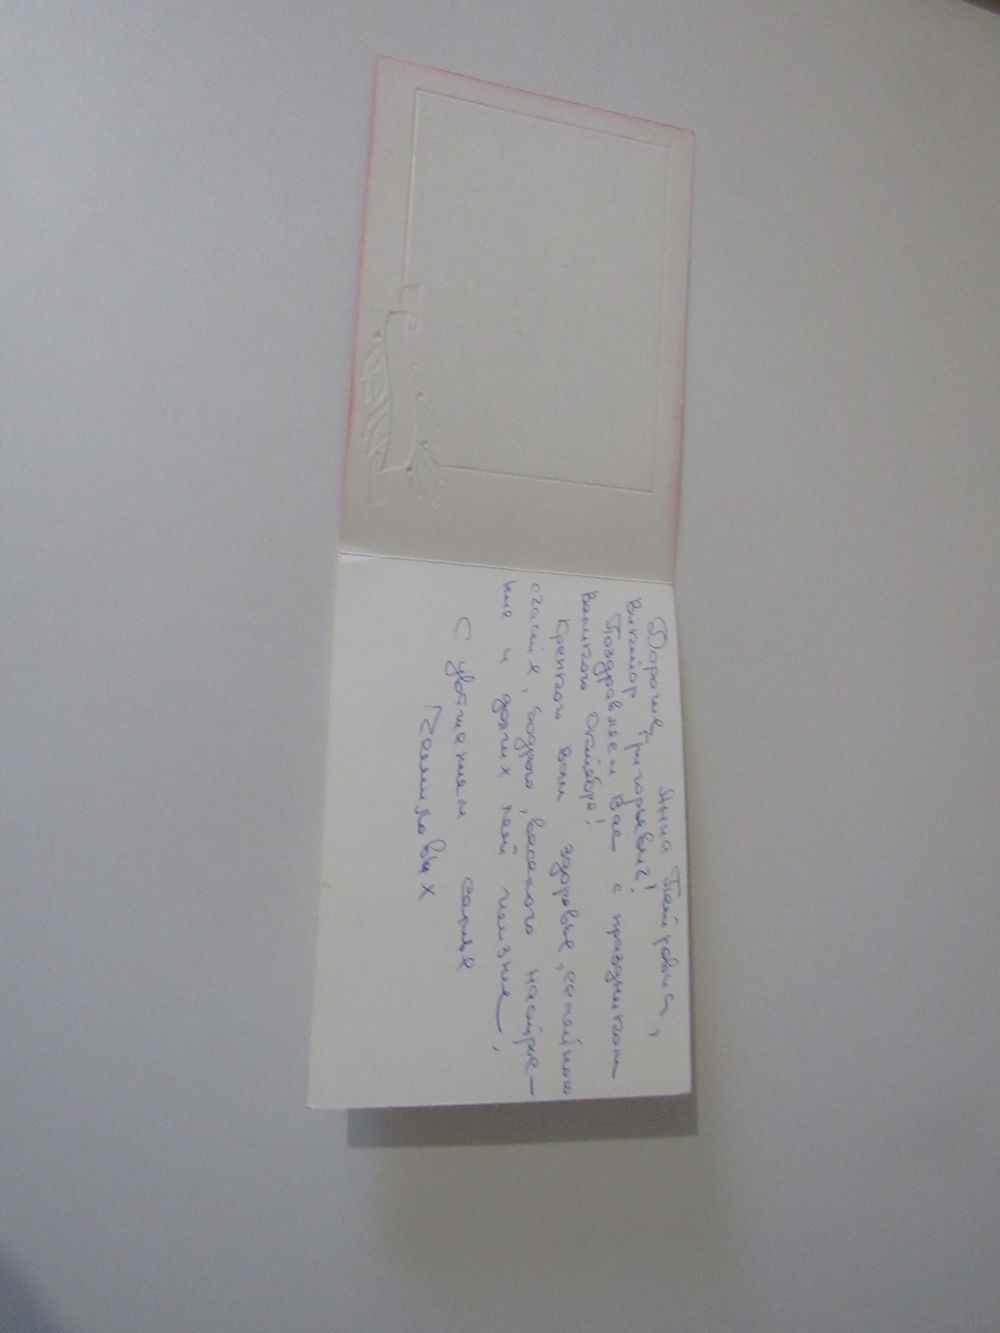 Дорогие Анна Петровна,
Виктор Григорьевич!
Поздравляем Вас с праздником
Великого Октября!
Крепкого Вам здоровья, семейного
счастья, бодрого, веселого настрое-
ния и долгих лет жизни.
С уважением семья